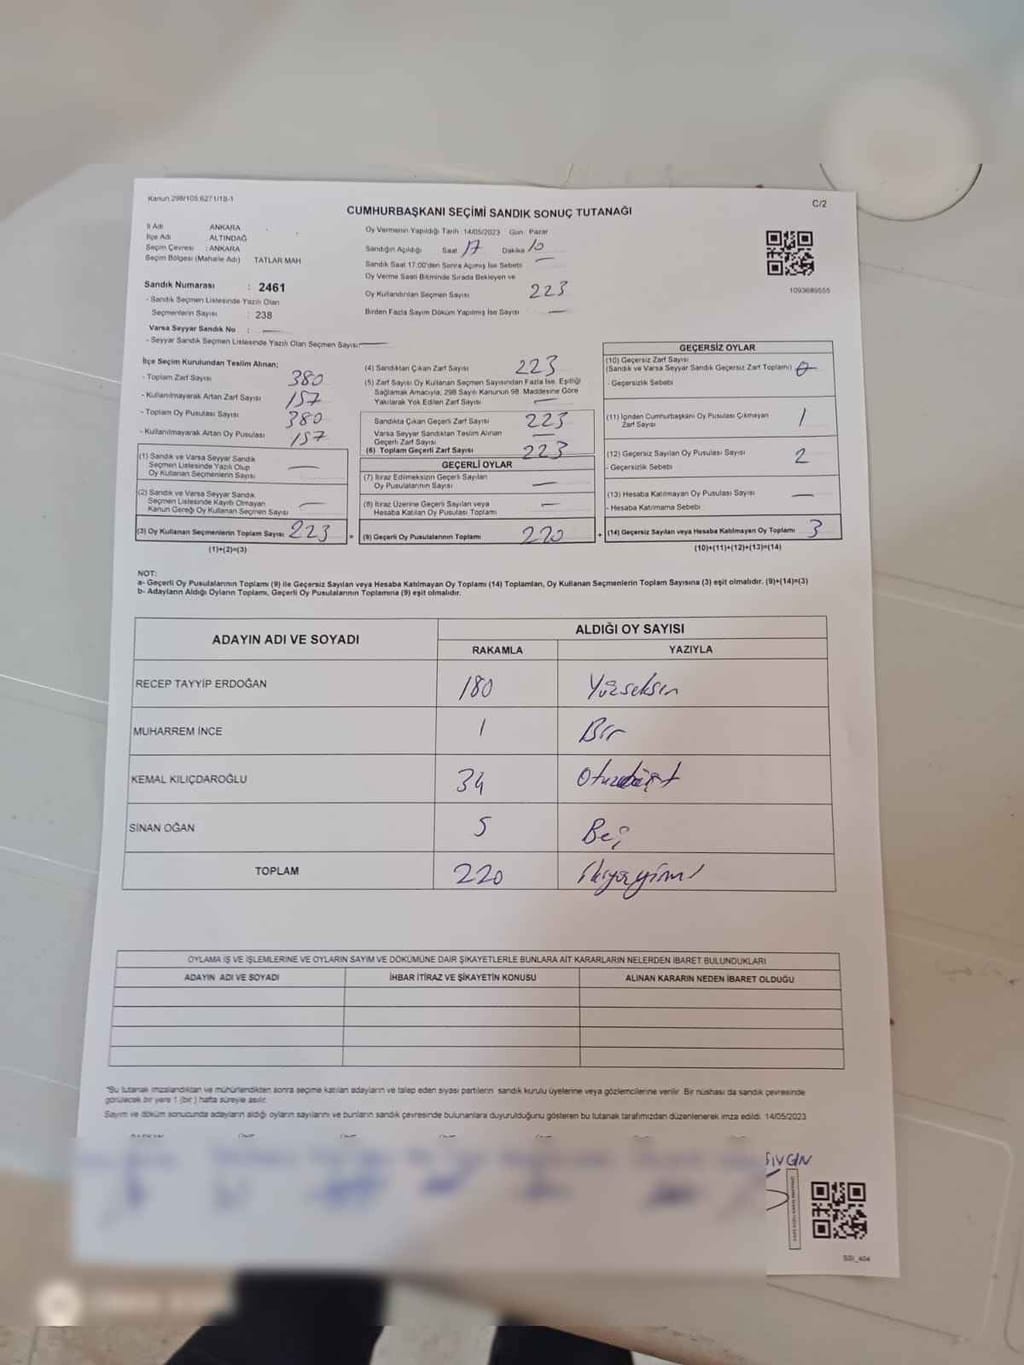 Kanun 298/105,6271/18-1
C/2
CUMHURBAŞKANI SEÇİMİ SANDIK SONUÇ TUTANAĞI
İl Adı ANKARA
İlçe Adı ALTINDAĞ
Seçim Çevresi : ANKARA
Seçim Bölgesi (Mahalle Adı) TATLAR MAH
Sandık Numarası : 2461
- Sandık Seçmen Listesinde Yazılı Olan
Seçmenlerin Sayısı : 238
Varsa Seyyar Sandık No : —
- Seyyar Sandık Seçmen Listesinde Yazılı Olan Seçmen Sayısı: —
Oy Vermenin Yapıldığı Tarih 14/05/2023 Gün: Pazar
Sandığın Açıldığı Saat 17 Dakika 10
Sandık Saat 17:00'den Sonra Açılmış İse Sebebi —
Oy Verme Saati Bitiminde Sırada Bekleyen ve
Oy Kullandırılan Seçmen Sayısı 223
Birden Fazla Sayım Döküm Yapılmış İse Sayısı —
1093689555
İlçe Seçim Kurulundan Teslim Alınan;
- Toplam Zarf Sayısı 380
- Kullanılmayarak Artan Zarf Sayısı 157
- Toplam Oy Pusulası Sayısı 380
- Kullanılmayarak Artan Oy Pusulası 157
(1) Sandık ve Varsa Seyyar Sandık
Seçmen Listesinde Yazılı Olup
Oy Kullanan Seçmenlerin Sayısı —
(2) Sandık ve Varsa Seyyar Sandık
Seçmen Listesinde Kayıtlı Olmayan
Kanun Gereği Oy Kullanan Seçmen Sayısı —
(3) Oy Kullanan Seçmenlerin Toplam Sayısı 223
(1)+(2)=(3)
(4) Sandıktan Çıkan Zarf Sayısı 223
(5) Zarf Sayısı Oy Kullanan Seçmen Sayısından Fazla İse, Eşitliği
Sağlamak Amacıyla; 298 Sayılı Kanunun 98. Maddesine Göre
Yakılarak Yok Edilen Zarf Sayısı —
Sandıkta Çıkan Geçerli Zarf Sayısı 223
Varsa Seyyar Sandıktan Teslim Alınan
Geçerli Zarf Sayısı —
(6) Toplam Geçerli Zarf Sayısı 223
GEÇERLİ OYLAR
(7) İtiraz Edilmeksizin Geçerli Sayılan
Oy Pusulalarının Sayısı —
(8) İtiraz Üzerine Geçerli Sayılan veya
Hesaba Katılan Oy Pusulası Toplamı —
(9) Geçerli Oy Pusulalarının Toplamı 220
GEÇERSİZ OYLAR
(10) Geçersiz Zarf Sayısı
(Sandık ve Varsa Seyyar Sandık Geçersiz Zarf Toplamı) 0
- Geçersizlik Sebebi
(11) İçinden Cumhurbaşkanı Oy Pusulası Çıkmayan
Zarf Sayısı 1
(12) Geçersiz Sayılan Oy Pusulası Sayısı 2
- Geçersizlik Sebebi
(13) Hesaba Katılmayan Oy Pusulası Sayısı —
- Hesaba Katılmama Sebebi
(14) Geçersiz Sayılan veya Hesaba Katılmayan Oy Toplamı 3
(10)+(11)+(12)+(13)=(14)
NOT:
a- Geçerli Oy Pusulalarının Toplamı (9) ile Geçersiz Sayılan veya Hesaba Katılmayan Oy Toplamı (14) Toplamları, Oy Kullanan Seçmenlerin Toplam Sayısına (3) eşit olmalıdır. (9)+(14)=(3)
b- Adayların Aldığı Oyların Toplamı, Geçerli Oy Pusulalarının Toplamına (9) eşit olmalıdır.
ADAYIN ADI VE SOYADI
ALDIĞI OY SAYISI
RAKAMLA YAZIYLA
RECEP TAYYİP ERDOĞAN 180 Yüzseksen
MUHARREM İNCE 1 Bir
KEMAL KILIÇDAROĞLU 34 Otuzdört
SİNAN OĞAN 5 Beş
TOPLAM 220 İkiyüzyirmi
OYLAMA İŞ VE İŞLEMLERİNE VE OYLARIN SAYIM VE DÖKÜMÜNE DAİR ŞİKAYETLERLE BUNLARA AİT KARARLARIN NELERDEN İBARET BULUNDUKLARI
ADAYIN ADI VE SOYADI İHBAR İTİRAZ VE ŞİKAYETİN KONUSU ALINAN KARARIN NEDEN İBARET OLDUĞU
"Bu tutanak imzalandıktan ve mühürlendikten sonra seçime katılan adayların ve talep eden siyasi partilerin sandık kurulu üyelerine veya gözlemcilerine verilir. Bir nüshası da sandık çevresinde
görülecek bir yere 1 (bir) hafta süreyle asılır.
Sayım ve döküm sonucunda adayların aldığı oyların sayılarını ve bunların sandık çevresinde bulunanlara duyurulduğunu gösteren bu tutanak tarafımızdan düzenlenerek imza edildi. 14/05/2023